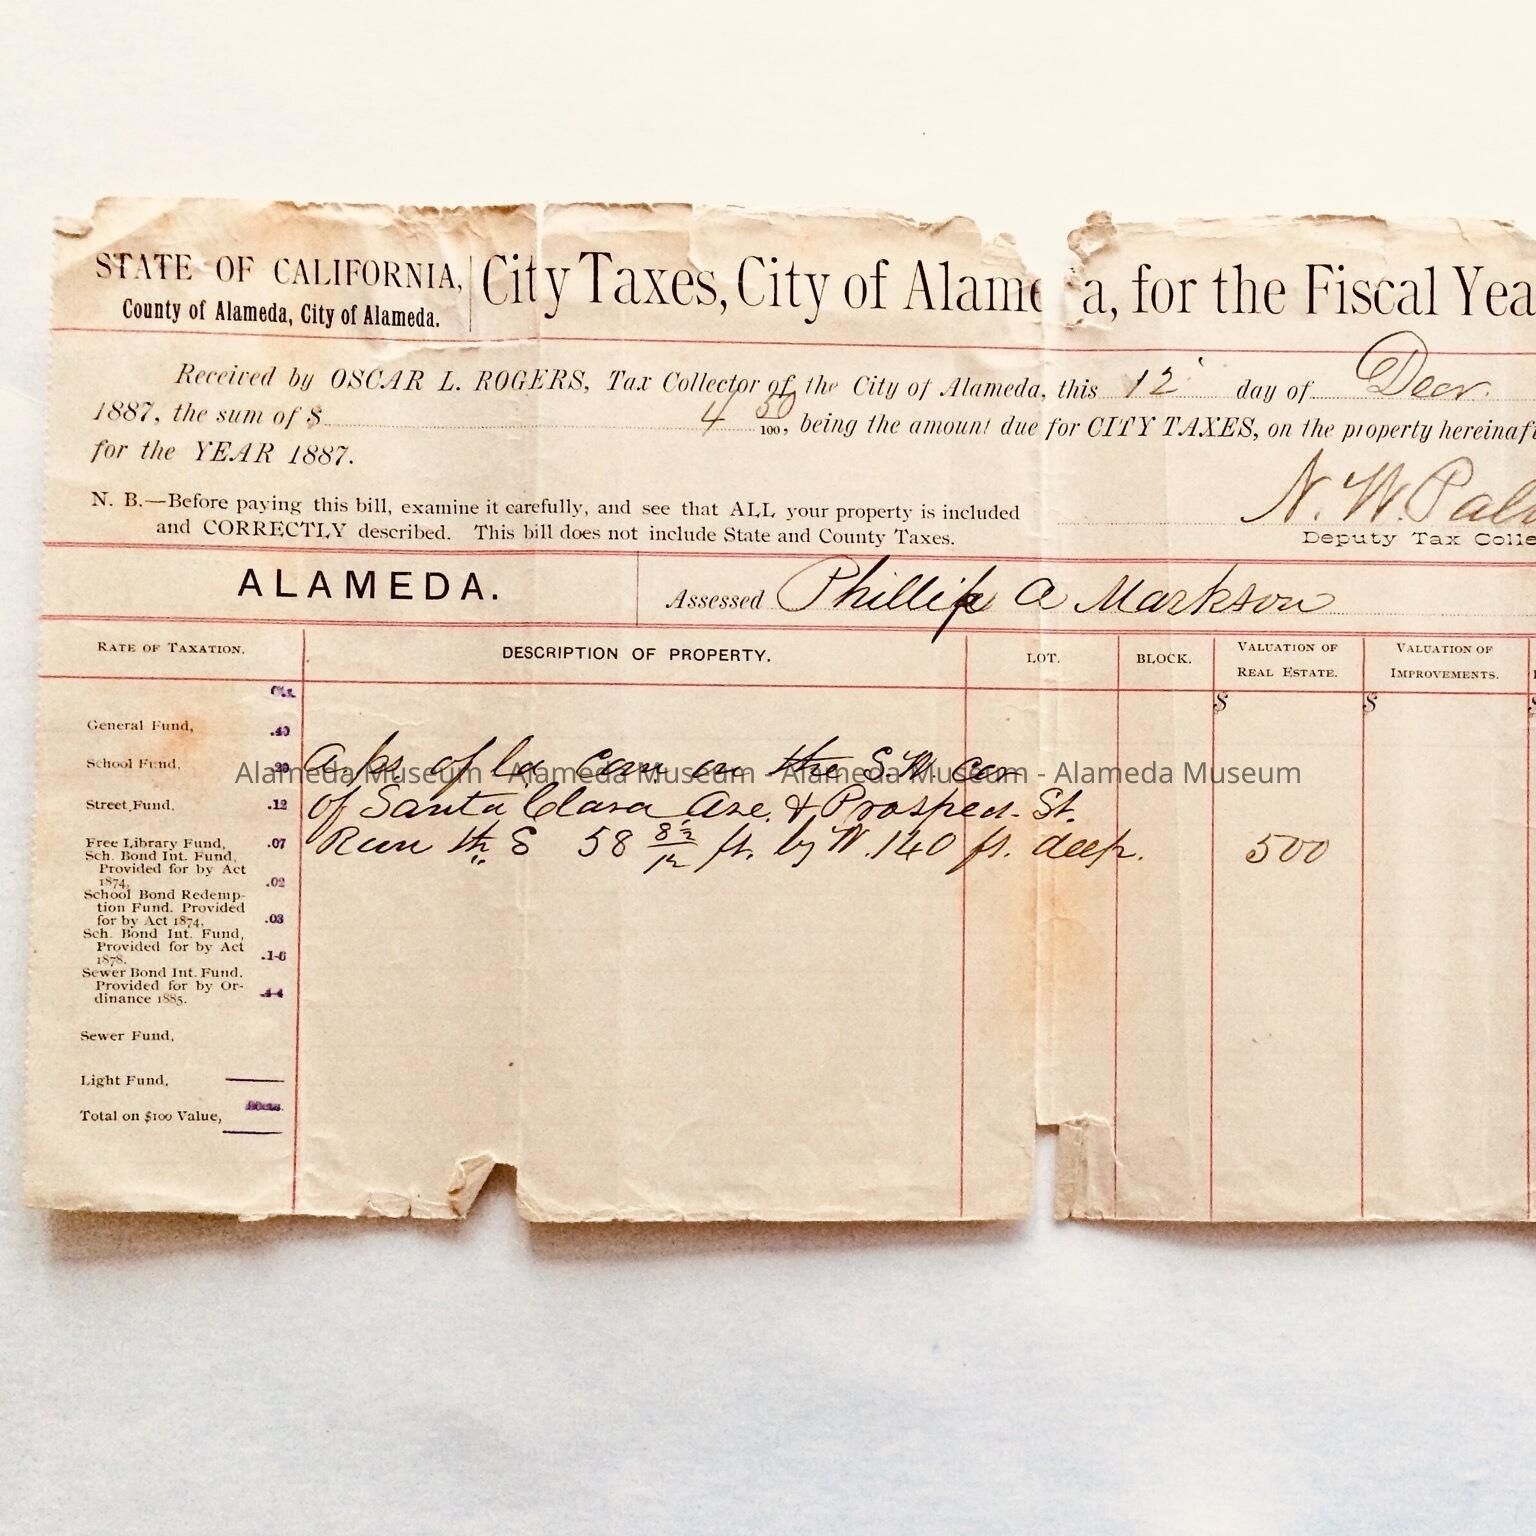 STATE OF CALIFORNIA,
County of Alameda, City of Alameda.
City Taxes, City of Alame a, for the Fiscal Yea
Received by OSCAR L. ROGERS, Tax Collector of the City of Alameda, this 12 day of Decr.
1887, the sum of $ 4 50/100, being the amount due for CITY TAXES, on the property hereinaft
for the YEAR 1887.
N. B.—Before paying this bill, examine it carefully, and see that ALL your property is included
and CORRECTLY described. This bill does not include State and County Taxes.
N. W. Pal
Deputy Tax Colle
ALAMEDA.
Assessed Phillip A Markson
RATE OF TAXATION.
DESCRIPTION OF PROPERTY.
LOT.
BLOCK.
VALUATION OF
REAL ESTATE.
VALUATION OF
IMPROVEMENTS.
Cts.
$ $
General Fund, .40
School Fund,
A ps of ld com on the S.W. cor
Alameda Museum - Alameda Museum - Alameda Museum - Alameda Museum
Street Fund, .12
of Santa Clara Ave. & Prospect St.
Free Library Fund, .07
Run th S 58 8½/12 ft. by W. 140 ft. deep. 500
Sch. Bond Int. Fund,
Provided for by Act
1874, .02
School Bond Redemp-
tion Fund. Provided
for by Act 1874, .03
Sch. Bond Int. Fund,
Provided for by Act
1878. .1-6
Sewer Bond Int. Fund.
Provided for by Or-
dinance 1885.
Sewer Fund,
Light Fund,
Total on $100 Value,